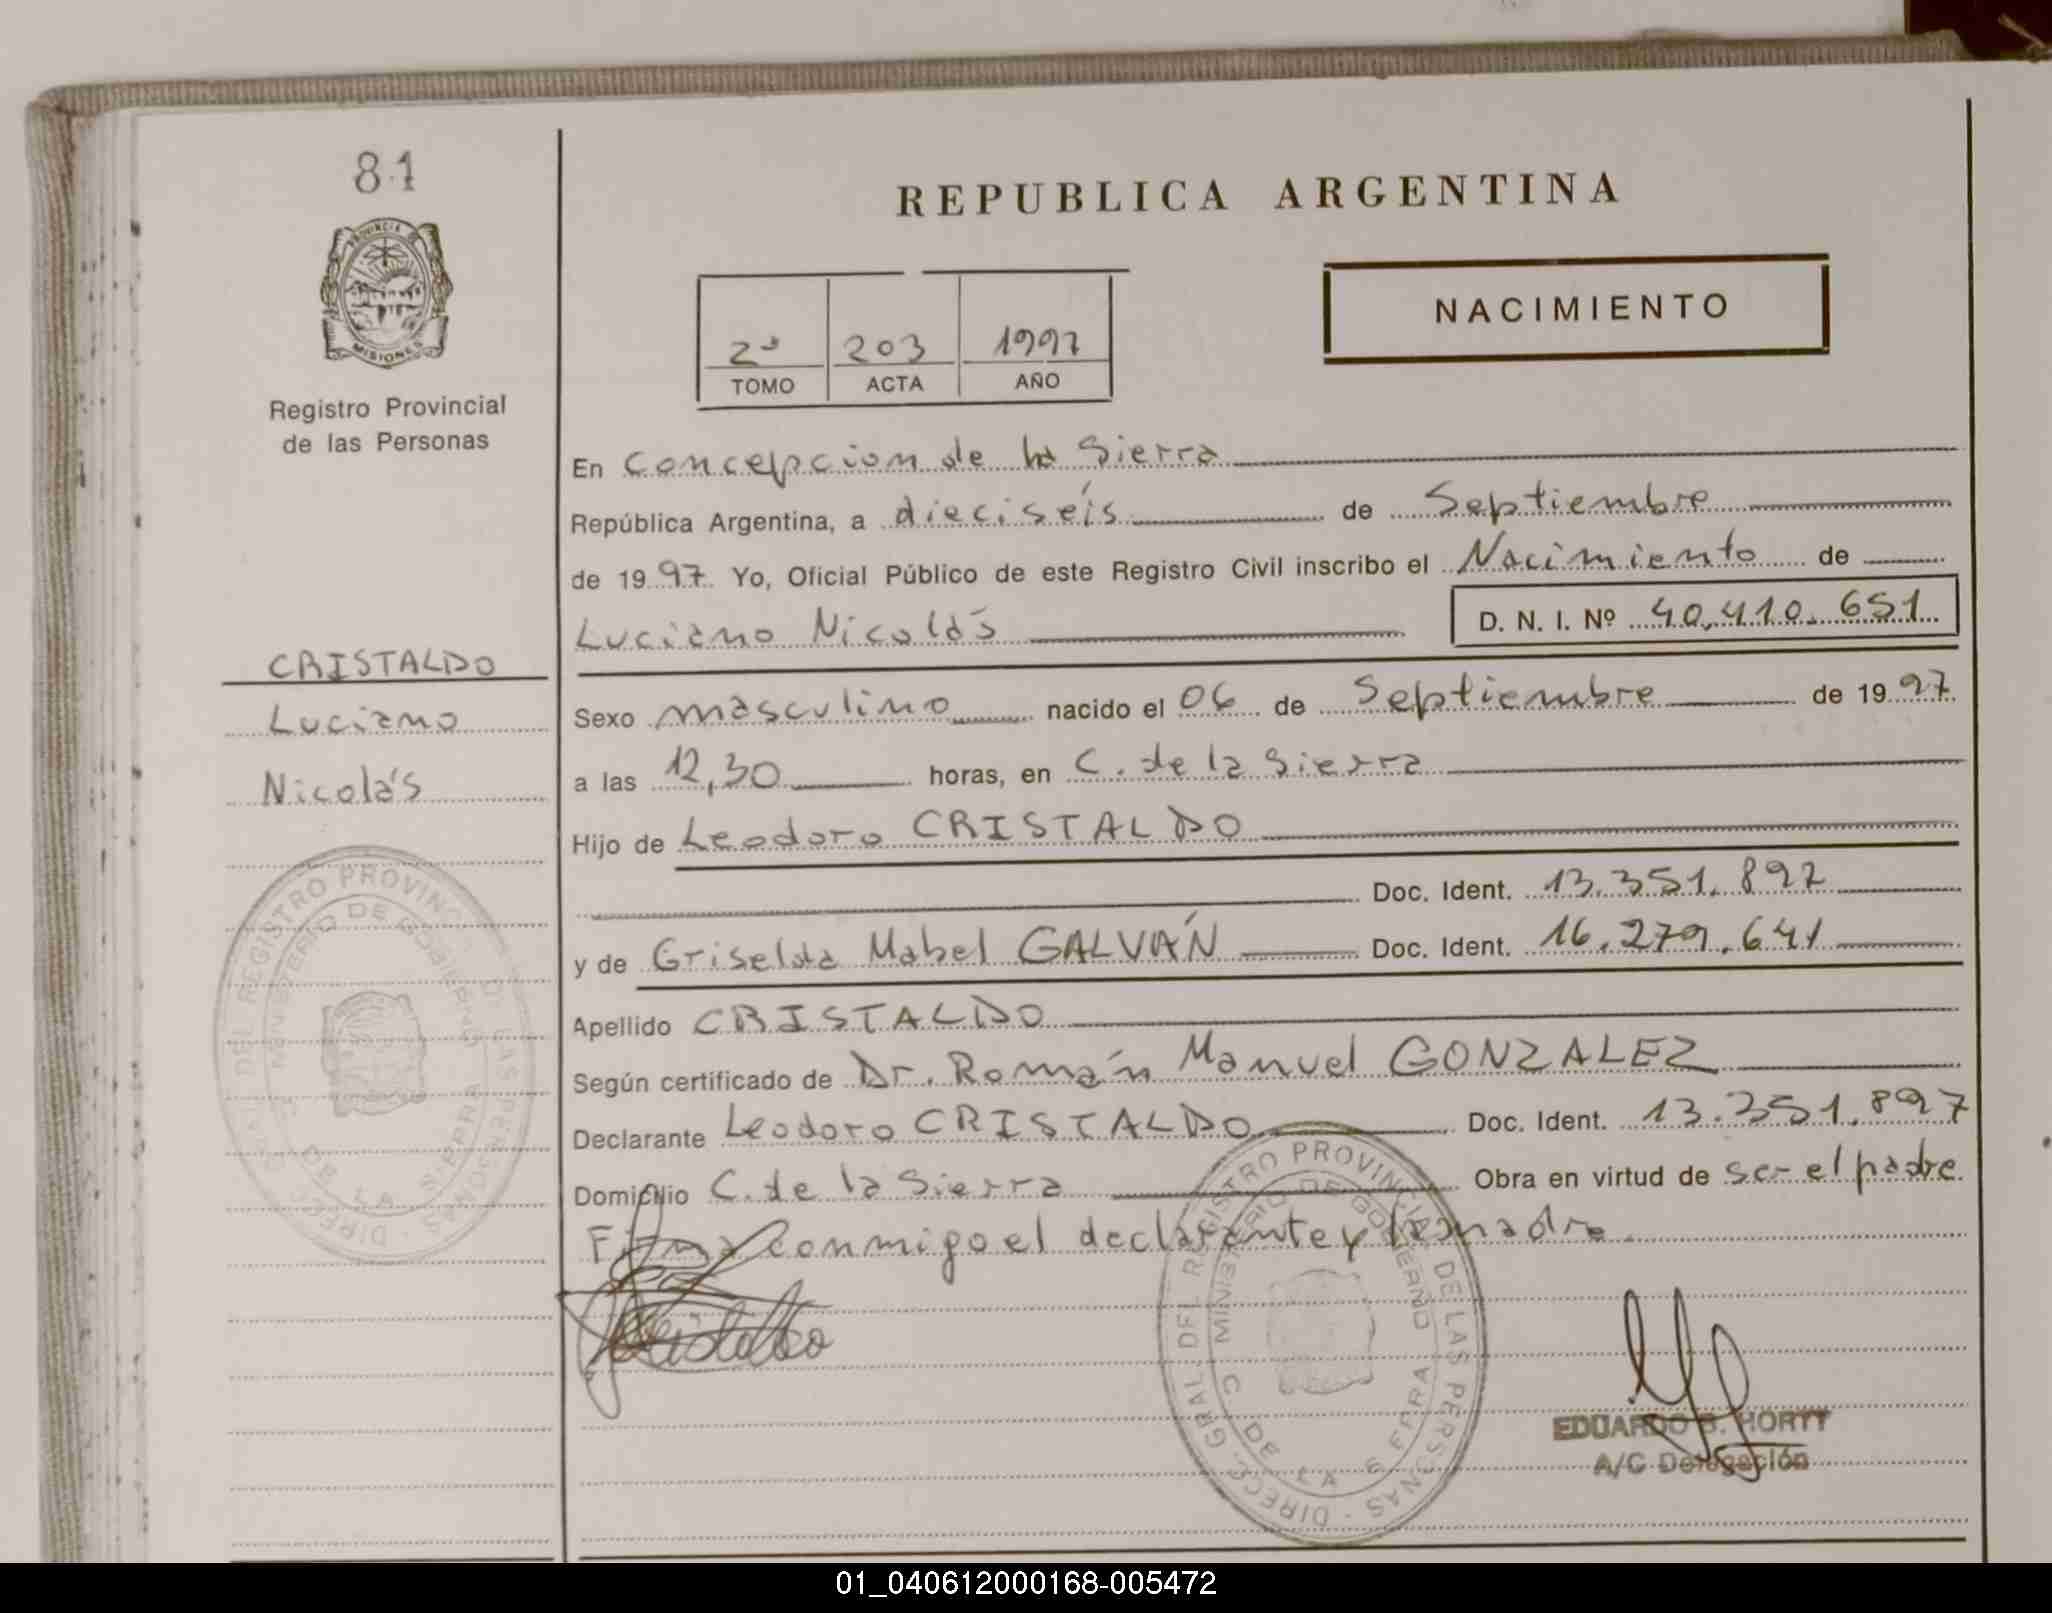 81
PROVINCIA DE
MISIONES
Registro Provincial
de las Personas
CRISTALDO
Luciano
Nicolás
DIREC. GRAL. DEL REGISTRO PROVINCIAL DE LAS PERSONAS
MINISTERIO DE GOBIERNO
C. DE LA SIERRA
REPUBLICA ARGENTINA
NACIMIENTO
2º 203 1997
TOMO ACTA AÑO
En Concepcion de la Sierra
República Argentina, a dieciséis de Septiembre
de 1997 Yo, Oficial Público de este Registro Civil inscribo el Nacimiento de
Luciano Nicolás D. N. I. Nº 40.410.651
Sexo masculino nacido el 06 de Septiembre de 1997
a las 12,30 horas, en C. de la Sierra
Hijo de Leodoro CRISTALDO
Doc. Ident. 13.351.897
y de Griselda Mabel GALVÁN Doc. Ident. 16.279.641
Apellido CRISTALDO
Según certificado de Dr. Román Manuel GONZALEZ
Declarante Leodoro CRISTALDO Doc. Ident. 13.351.897
Domicilio C. de la Sierra Obra en virtud de ser el padre
Firma conmigo el declarante y la madre.
DIREC. GRAL. DEL REGISTRO PROVINCIAL DE LAS PERSONAS
MINISTERIO DE GOBIERNO
C. DE LA SIERRA
EDUARDO B. HORTT
A/C Delegación
01_040612000168-005472